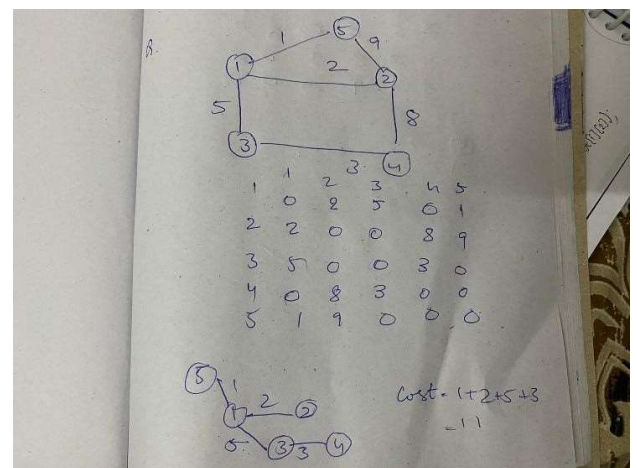 5
1
9
1
2
2
5
8
3
3
4
1 2 3 4 5
1 0 2 5 0 1
2 2 0 0 8 9
3 5 0 0 3 0
4 0 8 3 0 0
5 1 9 0 0 0
5
1
1
2
2
5
3
3
4
Cost = 1+2+5+3
= 11